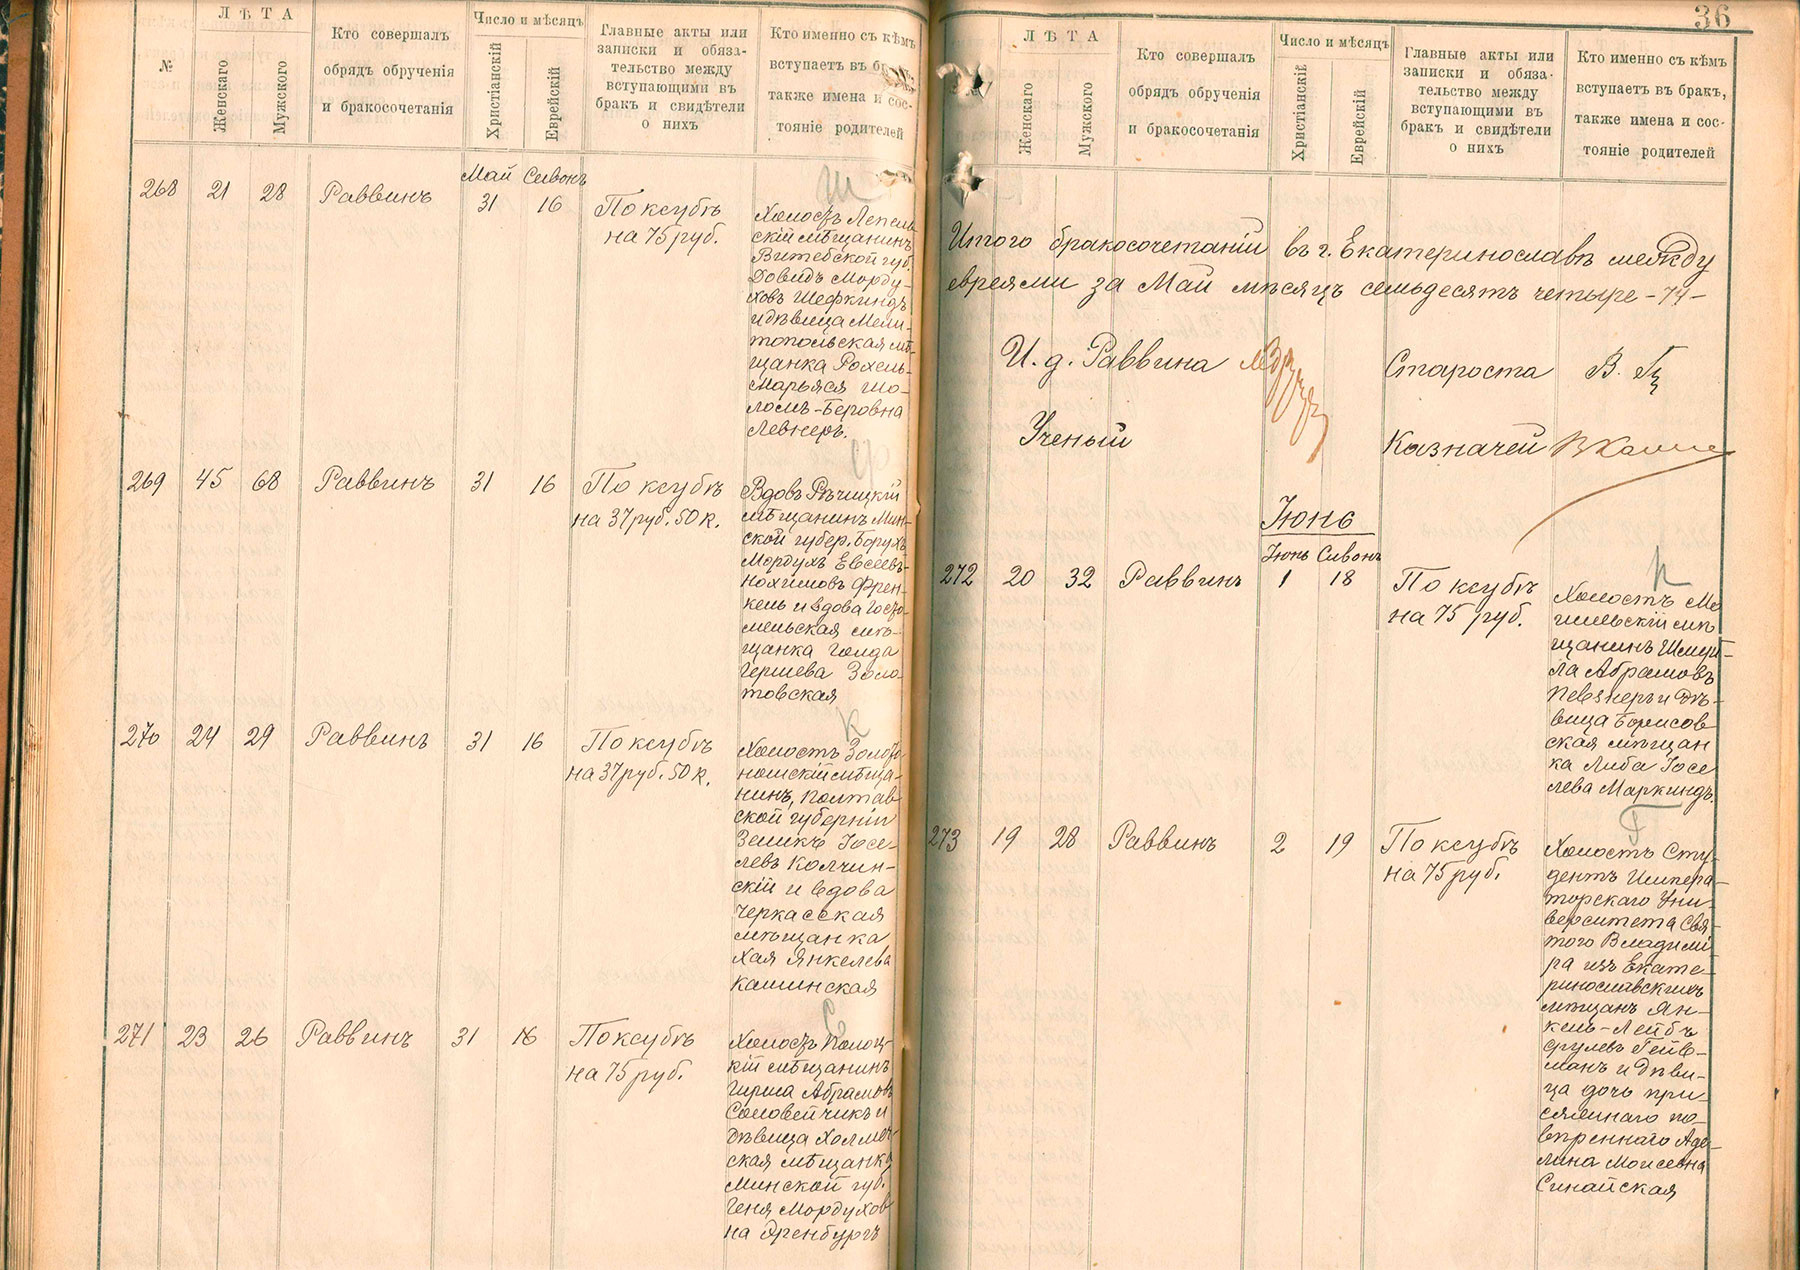 ЛѢТА
Число и мѣсяцъ
№
Женскаго
Мужского
Кто совершалъ
обрядъ обрученія
и бракосочетанія
Христіанскій
Еврейскій
Главные акты или
записки и обяза-
тельство между
вступающими въ
бракъ и свидѣтели
о нихъ
Кто именно съ кѣмъ
вступаетъ въ бр
также имена и сос-
тояніе родителей
Май Сивонъ
268 21 28 Раввинъ 31 16 По ксубѣ
на 75 руб.
Ш
Холостъ Лепель
скій мѣщанинъ
Витебской губ.
Довидъ Морду-
ховъ Шефкиндъ
и дѣвица Мели-
топольская мѣ-
щанка Рохель-
Марьяся Шо-
ломъ-Беровна
Левнеръ.
269 45 68 Раввинъ 31 16 По ксубѣ
на 37 руб. 50 к.
Ф
Вдовъ Рѣчицкій
мѣщанинъ Мин-
ской губер. Борухъ
Мордухъ Евсеевъ-
Нохимовъ Френ-
кель и вдова
мельская мѣ-
щанка Голда
Гершева Золо-
товская
270 24 29 Раввинъ 31 16 По ксубѣ
на 37 руб. 50 к.
К
Холостъ Золото
ношскій мѣща-
нинъ, Полтав
ской губерніи
Зеликъ Іосе-
левъ Колчин-
скій и вдова
Черкасская
мѣщанка
Хая Янкелева
Кашинская
271 23 26 Раввинъ 31 16 По ксубѣ
на 75 руб.
С
Холостъ Полоц-
кій мѣщанинъ
Гирша Абрамовъ
Соловейчикъ и
дѣвица Холмеч-
ская мѣщанка
Минской губ.
Геня Мордухов
на Эренбургъ
36
ЛѢТА
Число и мѣсяцъ
Женскаго
Мужского
Кто совершалъ
обрядъ обрученія
и бракосочетанія
Христіанскій
Еврейскій
Главные акты или
записки и обяза-
тельство между
вступающими въ
бракъ и свидѣтели
о нихъ
Кто именно съ кѣмъ
вступаетъ въ бракъ,
также имена и сос-
тояніе родителей
Итого бракосочетаній въ г. Екатеринославѣ между
евреями за Май мѣсяцъ семьдесятъ четыре -74-
И. д. Раввина
Староста В.
Ученый
Казначей
Іюнь
Іюнь Сивонъ
272 20 32 Раввинъ 1 18 По ксубѣ
на 75 руб.
П
Холостъ Мо
гилевскій мѣ
щанинъ Шмуй-
ла Абрамовъ
Певзнеръ и дѣ-
вица Борисов-
ская мѣщан
ка Либа Іосе
лева Маркиндъ.
273 19 28 Раввинъ 2 19 По ксубѣ
на 75 руб.
Г
Холостъ Сту-
дентъ Импера-
торскаго Уни-
верситета Свя-
того Владимі
ра изъ Екате-
ринославскихъ
мѣщанъ Ян-
кель-Лейбъ
Срулевъ Гейв-
манъ и дѣви-
ца дочь при-
сяжнаго по-
вѣреннаго Аде-
лина Моисеевна
Синайская